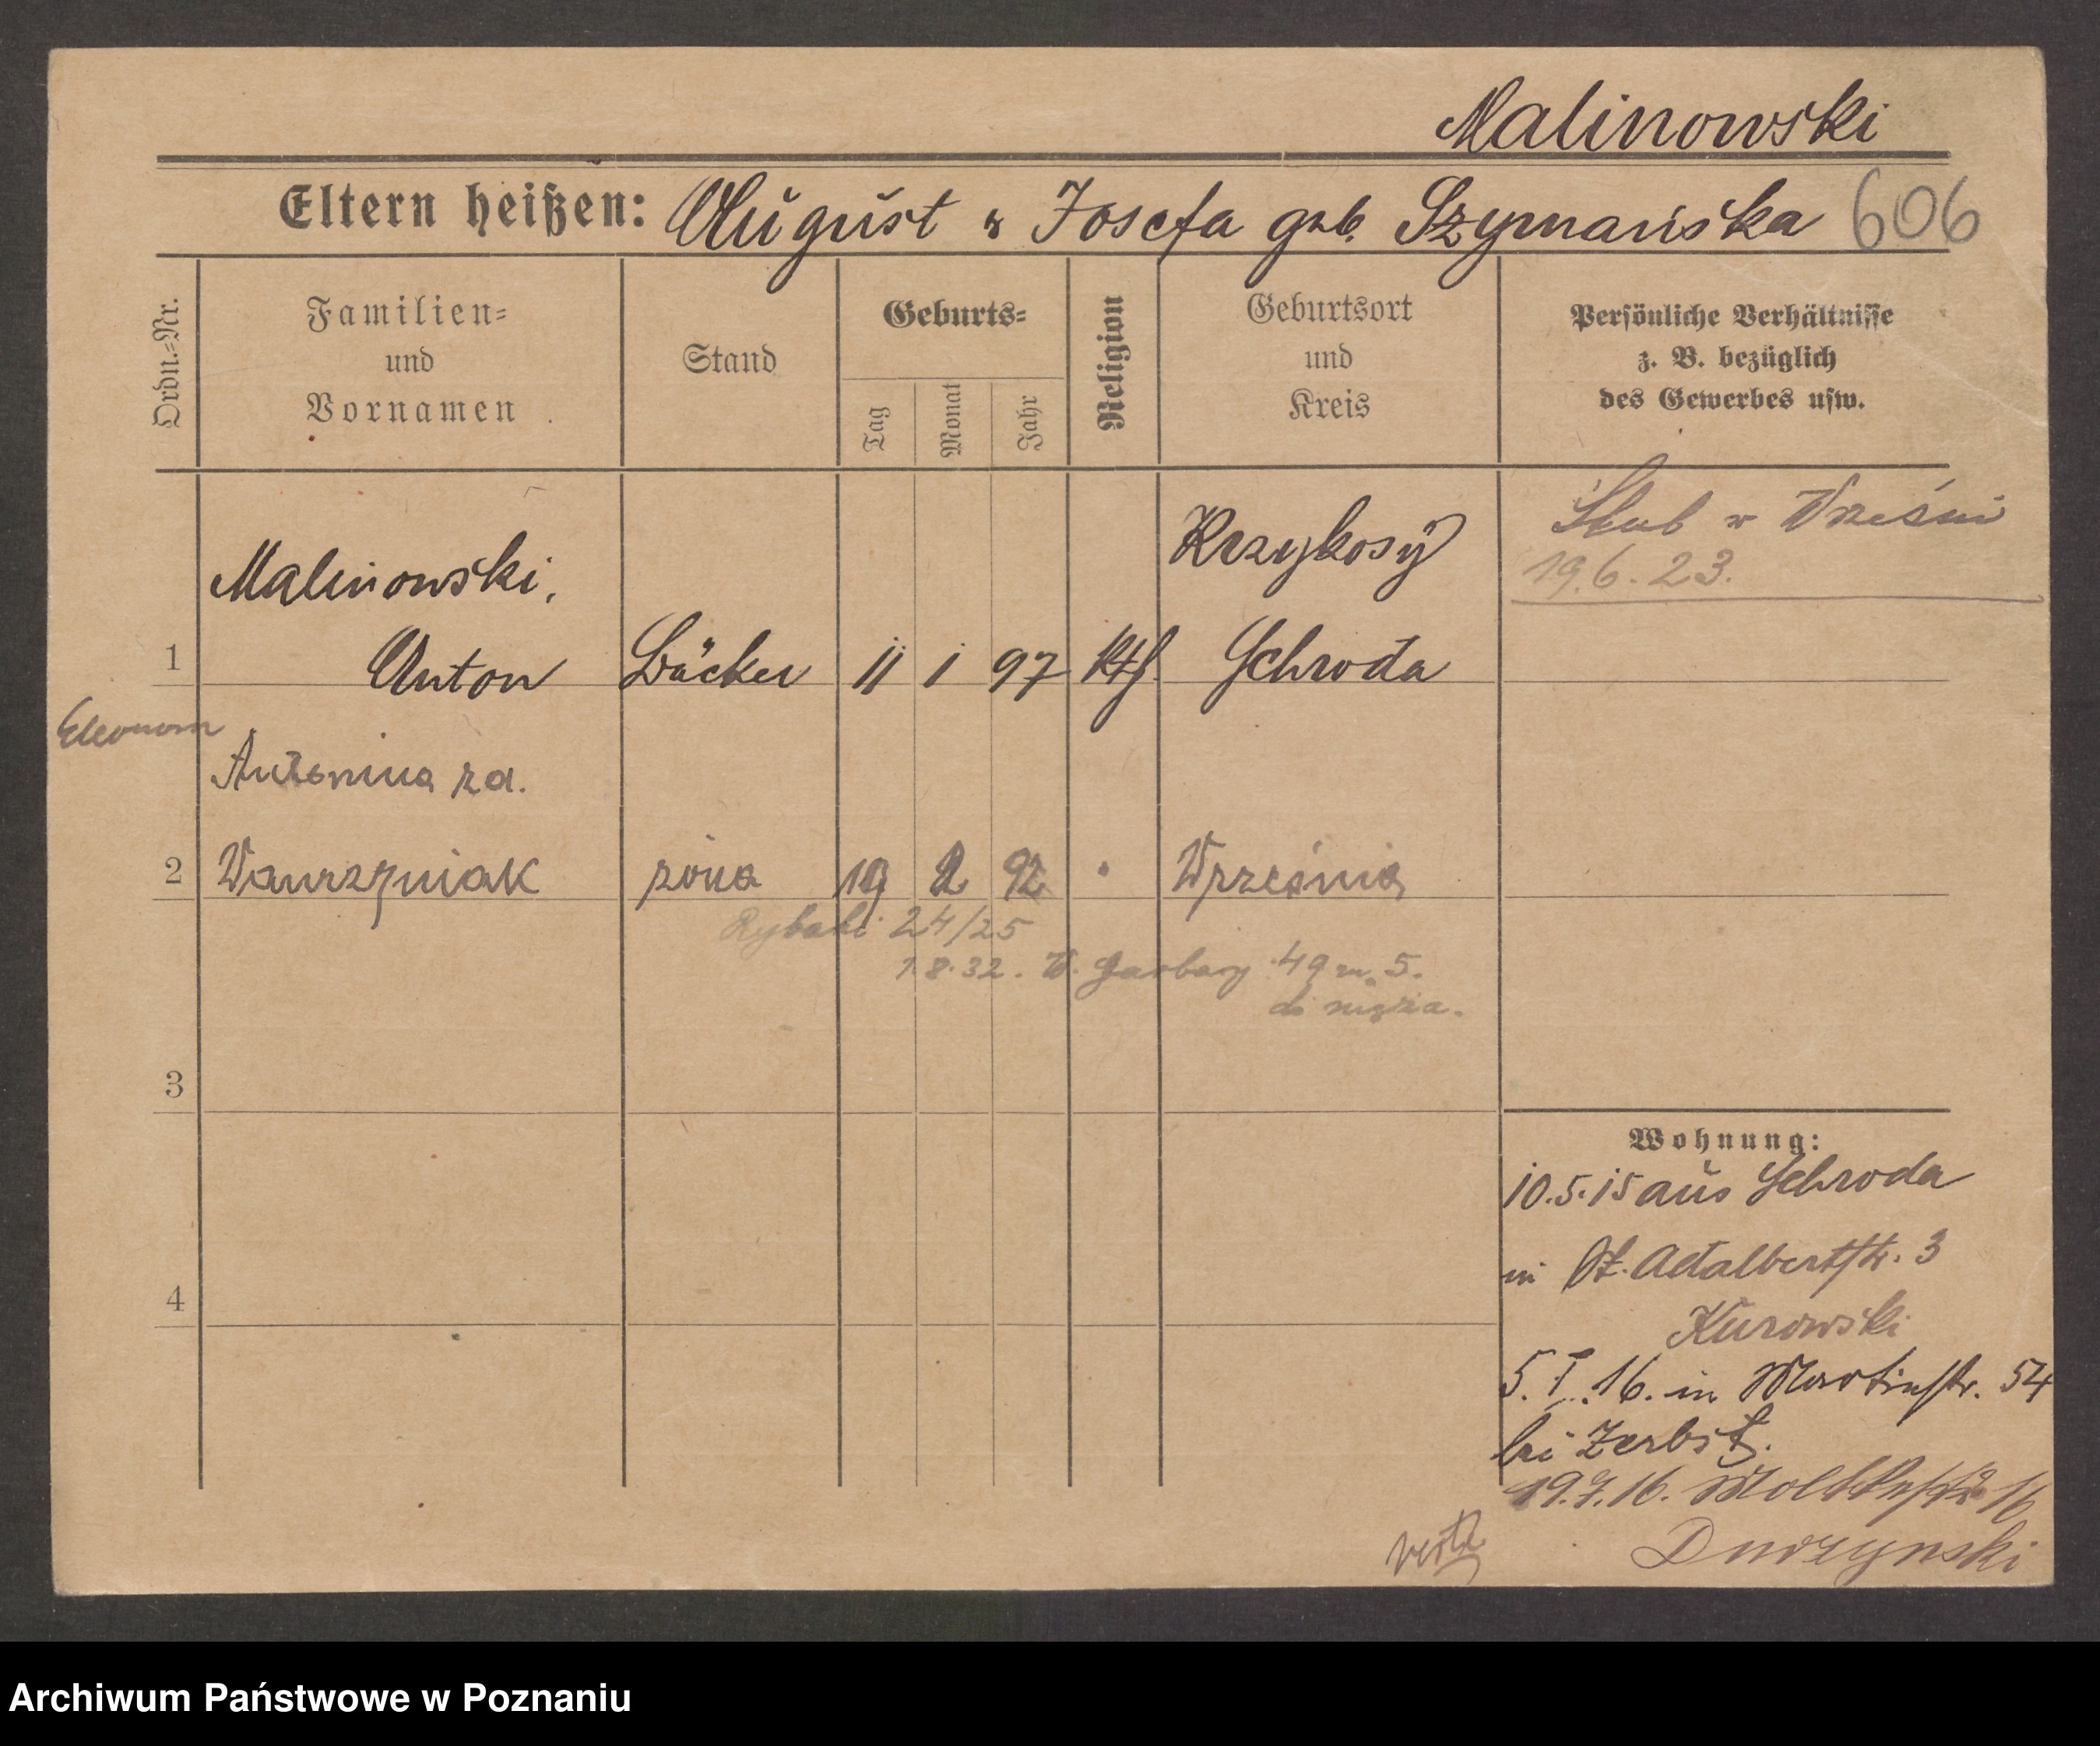 Malinowski
Eltern heißen: August u Josefa geb. Szymańska 606
Ordn.-Nr.
Familien- und Vornamen
Stand
Geburts-
Tag
Monat
Jahr
Religion
Geburtsort und Kreis
Persönliche Verhältnisse
z. B. bezüglich
des Gewerbes usw.
Ślub w Wrześni
19.6.23.
Malinowski, Krzykosy
1 Anton Bäcker 11 1 97 kth. Schroda
Eleonora
Antonina za.
2 Wawrzyniak żona 19 2 92 " Września
Rybaki 24/25
1.8.32. W. Garbary 49 m. 5.
do męża.
3
4
Wohnung:
10.5.15 aus Schroda
in St. Adalbertstr. 3
Kurowski
5.I.16. in Martinstr. 54
bei Zerbst.
19.7.16. Moltkestr 16
Durzynski
Archiwum Państwowe w Poznaniu